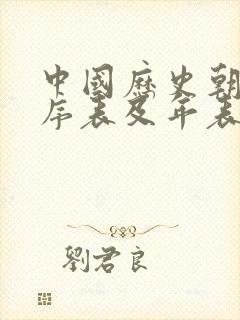 中國歷史朝
序表及年表
劉君良